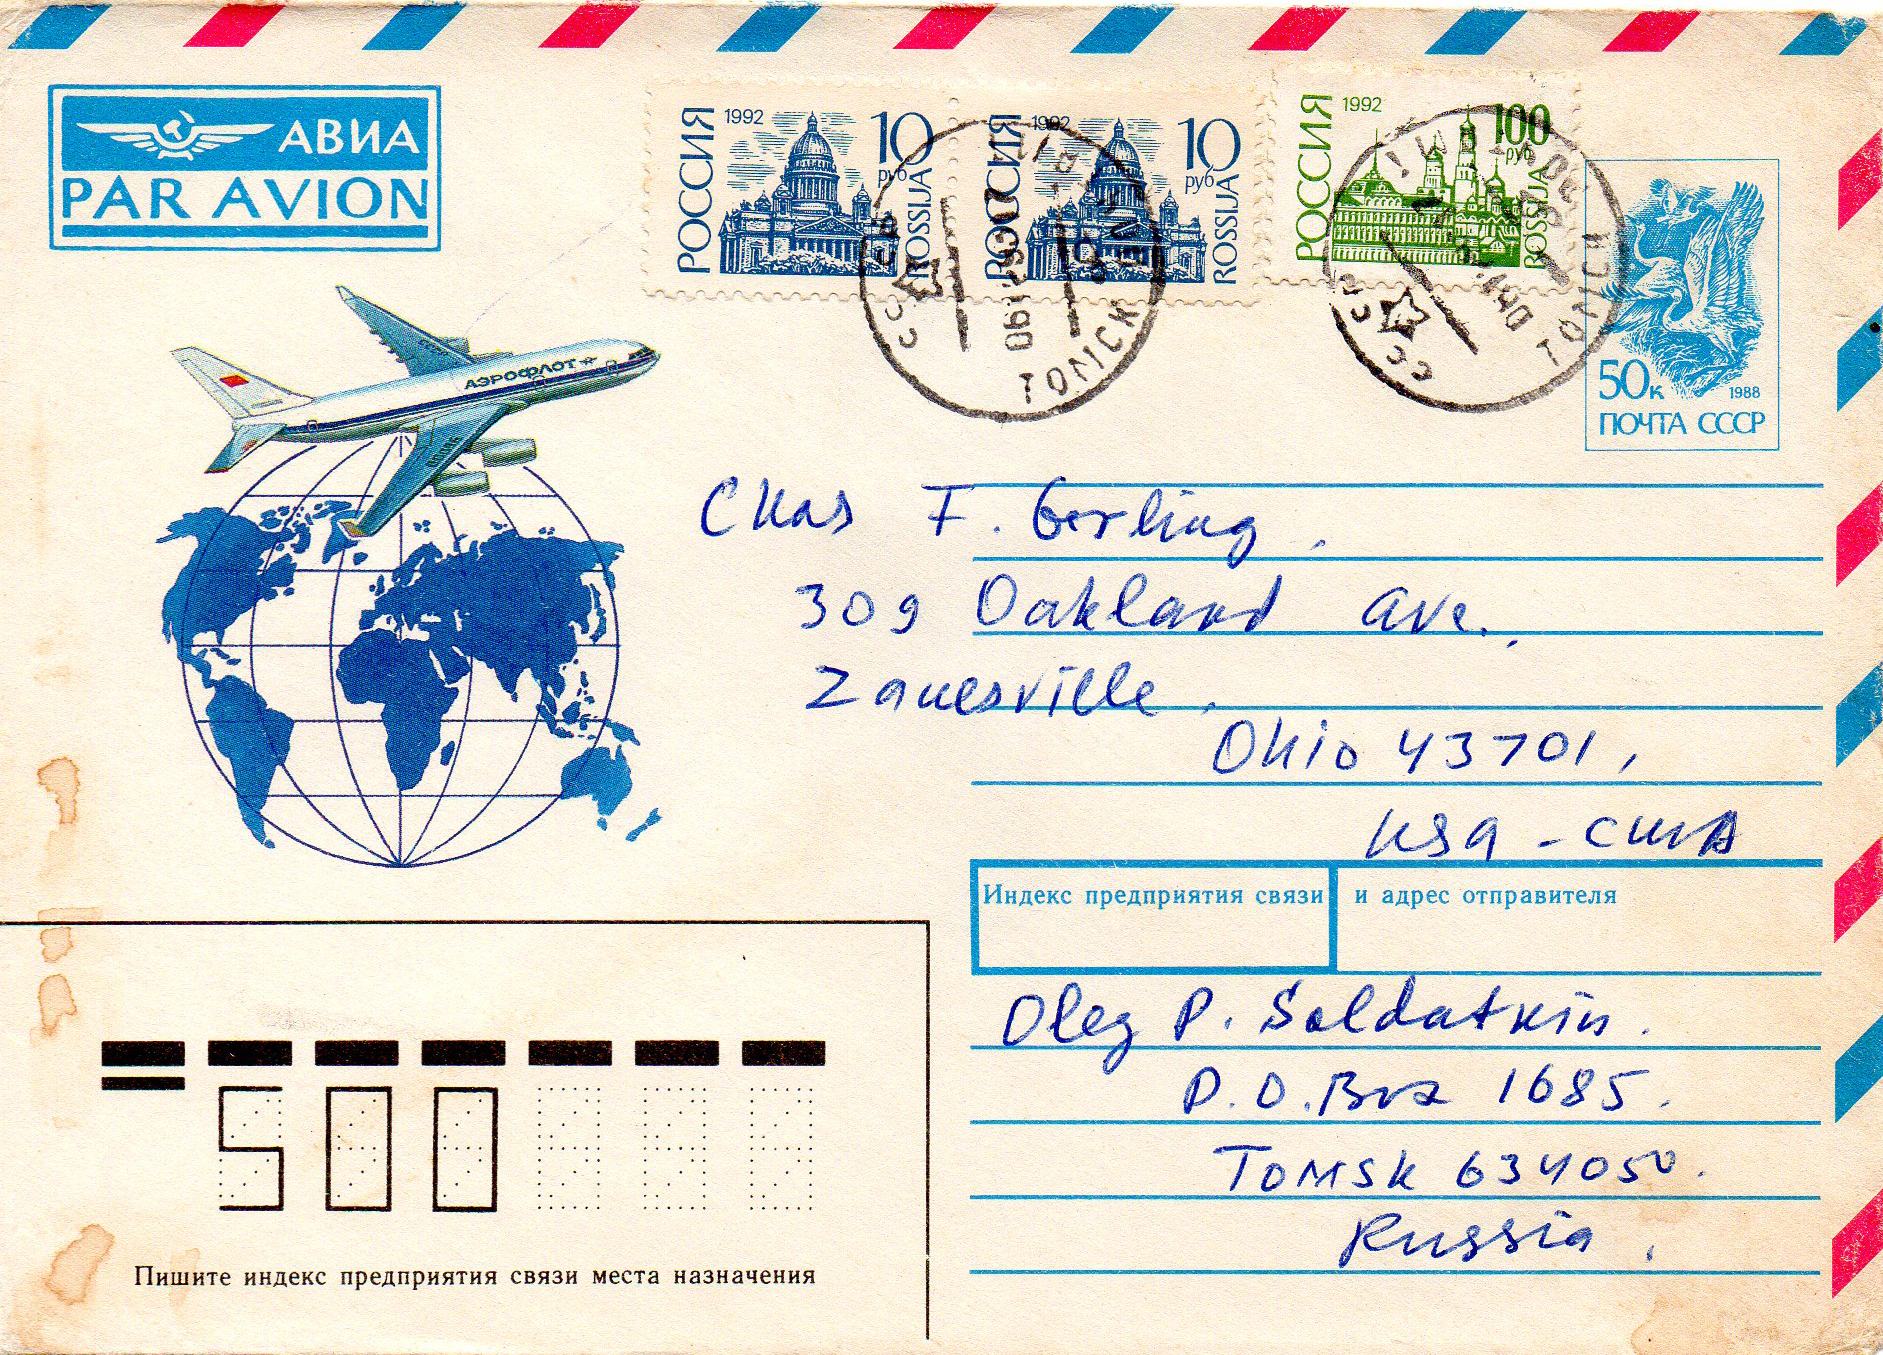 АВИА
PAR AVION
РОССИЯ
1992
10
руб
ROSSIJA
РОССИЯ
1992
10
руб
ROSSIJA
РОССИЯ
1992
100
руб
ROSSIJA
СССР
ТОМСК
СССР
ТОМСК
50к
1988
ПОЧТА СССР
АЭРОФЛОТ
Chas F. Gerling.
309 Oakland ave.,
Zanesville.
Ohio 43701,
USA - США
Индекс предприятия связи
и адрес отправителя
Oleg P. Soldatkin.
P.O.Box 1685.
Tomsk 634050.
Russia.
500
Пишите индекс предприятия связи места назначения